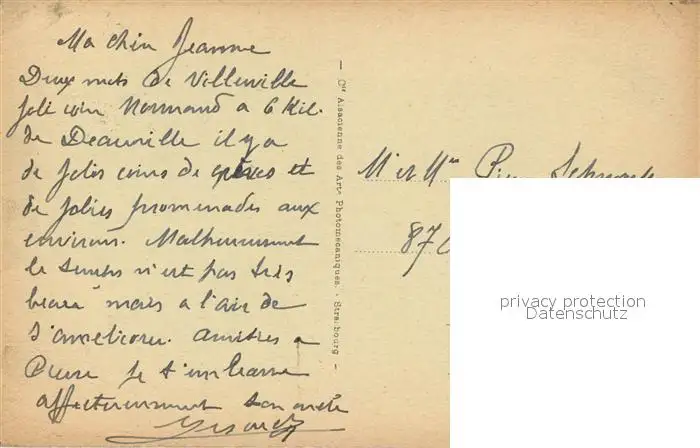 Ma chère Jeanne
Deux mots de Villerville
joli coin Normand a 6 Kil.
de Deauville il y a
de jolis coins de et
de jolies promenades aux
environs. Malheureusement
le temps n'est pas très
beau mais a l'air de
s'améliorer. amitiés a
Pierre je t'embrasse
affectueusement ton
Cie Alsacienne des Arts Photomécaniques. - Strasbourg -
M et Mme
87
privacy protection
Datenschutz